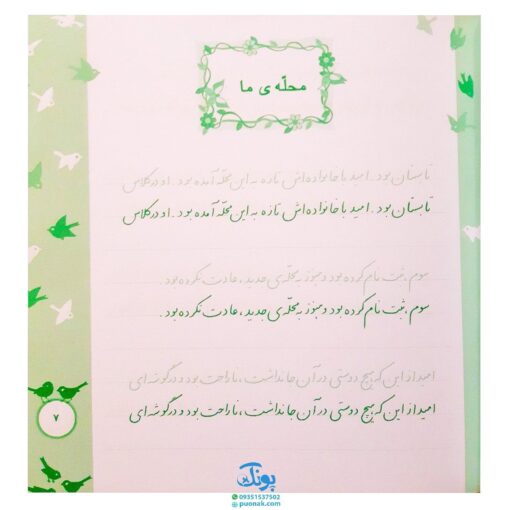 محلّه ی ما
تابستان بود. امید با خانواده‌اش تازه به این محله آمده بود. او در کلاس
تابستان بود. امید با خانواده‌اش تازه به این محلّه آمده بود. او در کلاس
سوم، ثبت نام کرده بود و هنوز به محلّه‌ی جدید، عادت نکرده بود.
سوم، ثبت نام کرده بود و هنوز به محلّه‌ی جدید، عادت نکرده بود.
امید از این که هیچ دوستی در آن جا نداشت، ناراحت بود و در گوشه‌ای
امید از این که هیچ دوستی در آن جا نداشت، ناراحت بود و در گوشه‌ای
۷
پونک
09351537502
puonak.com